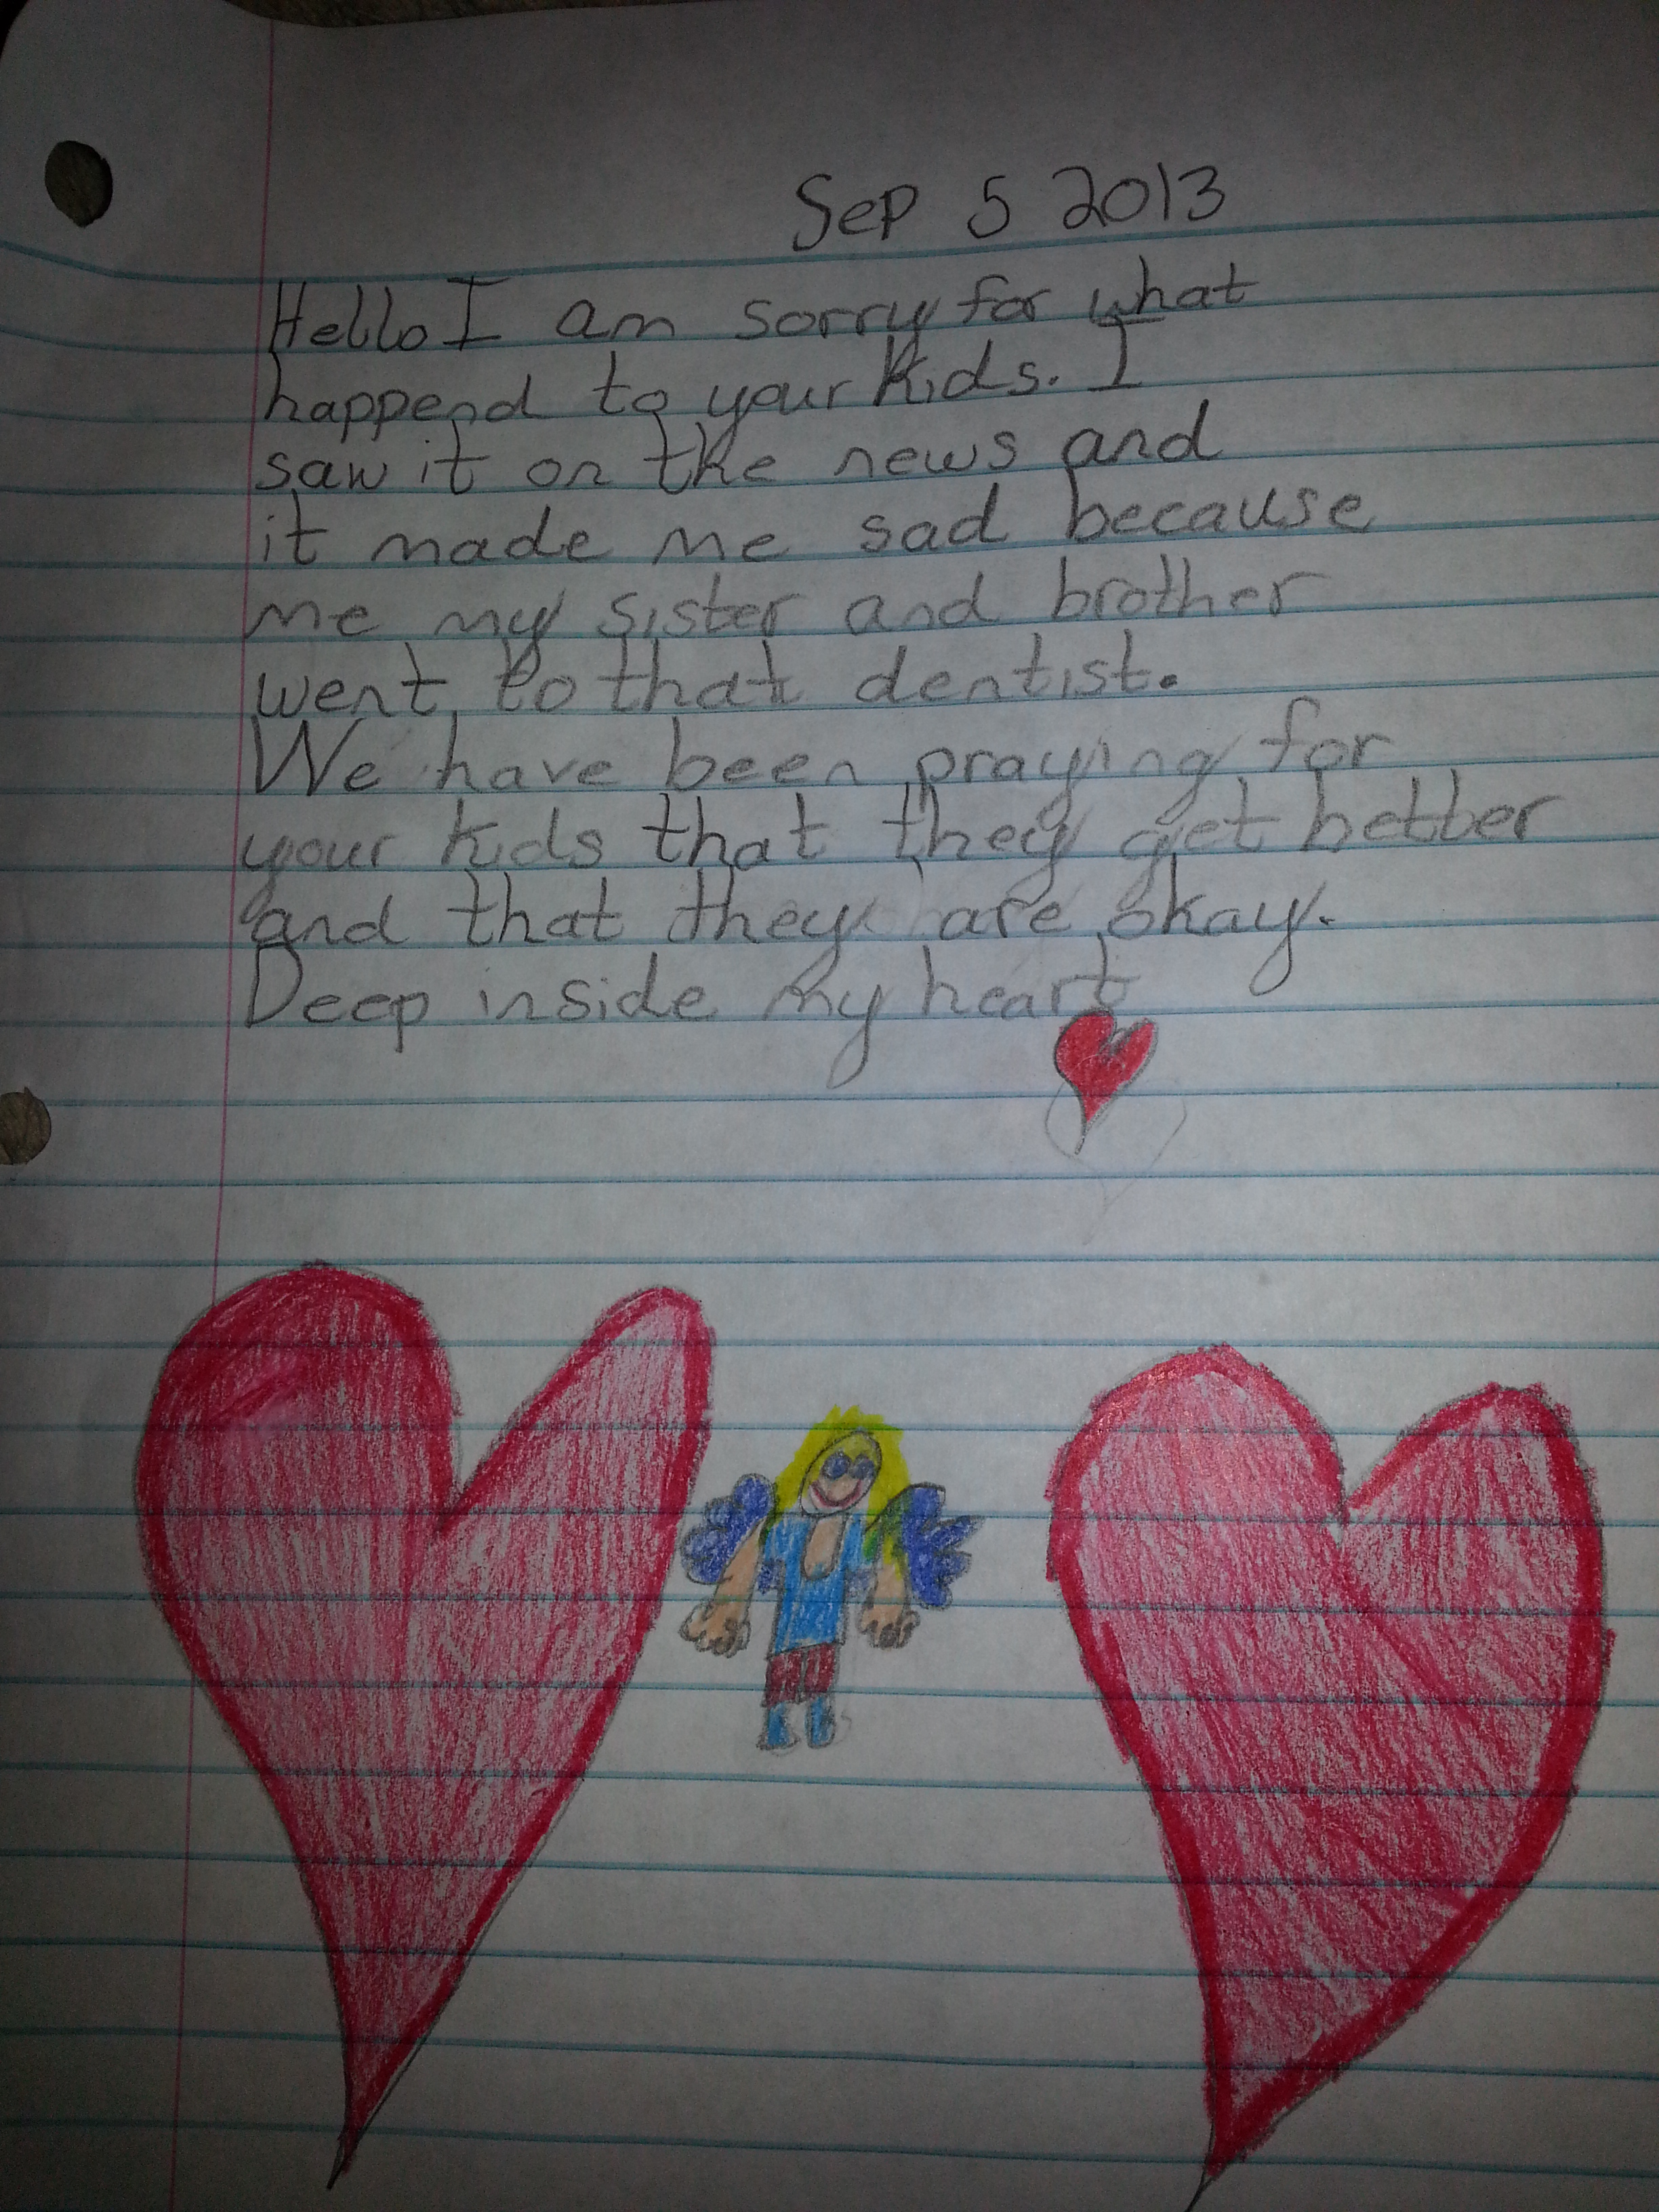 Sep 5 2013
Hello I am sorry for what
happend to your kids. I
saw it on the news and
it made me sad because
me my sister and brother
went to that dentist.
We have been praying for
your kids that they get better
and that they are okay.
Deep inside my heart